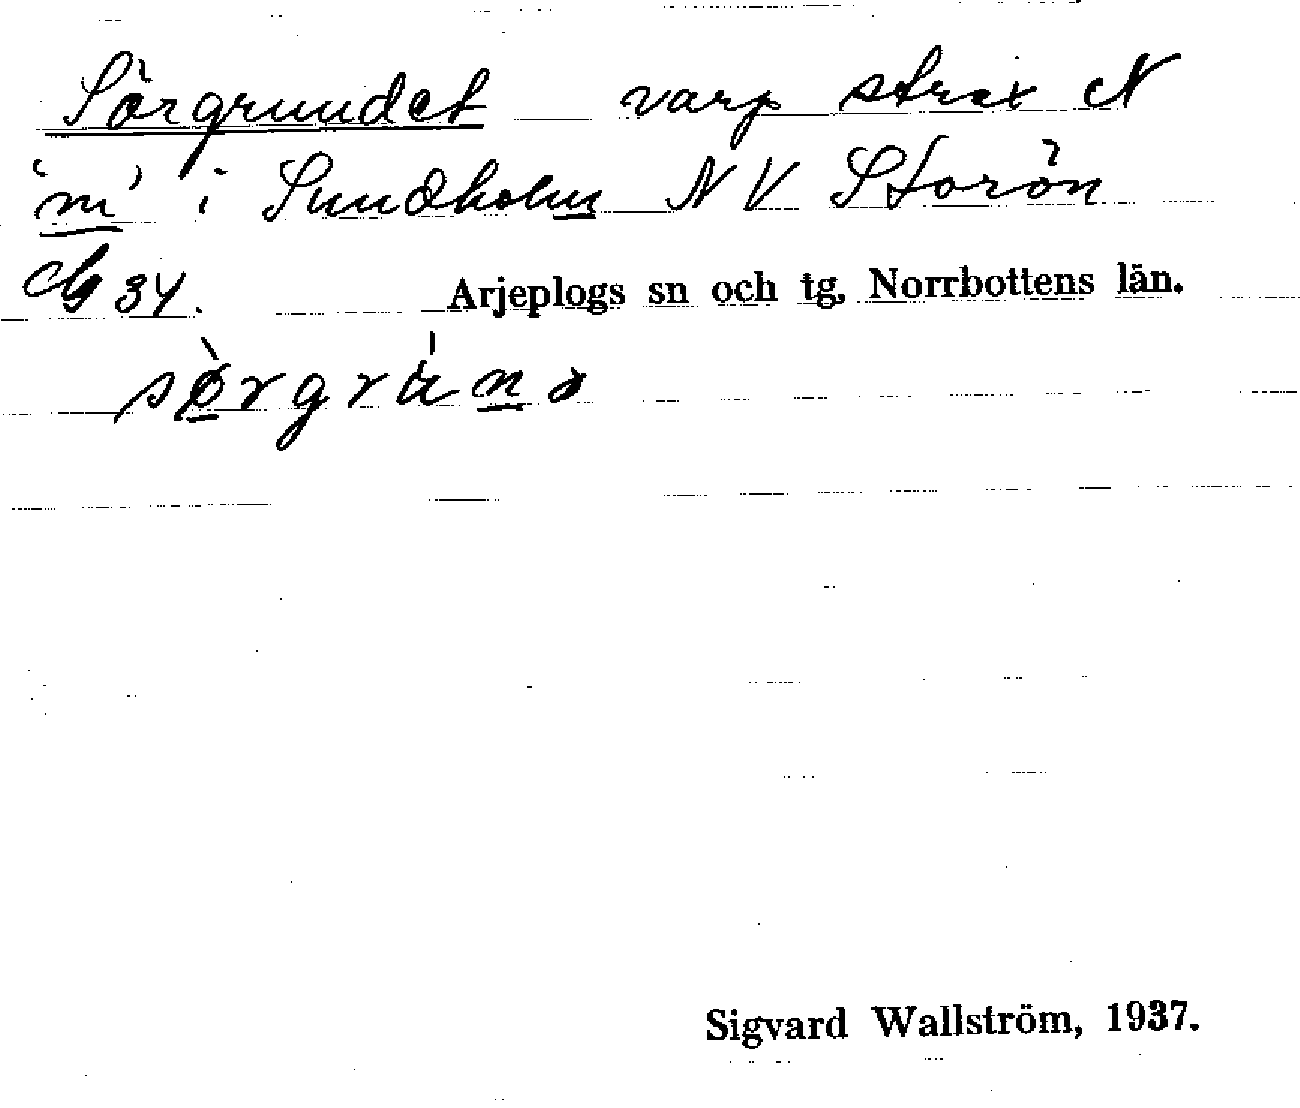 Sörgrundet varp strax N
'm' i Sundholm NV Storön
34. Arjeplogs sn och tg, Norrbottens län.
Sigvard Wallström, 1937.